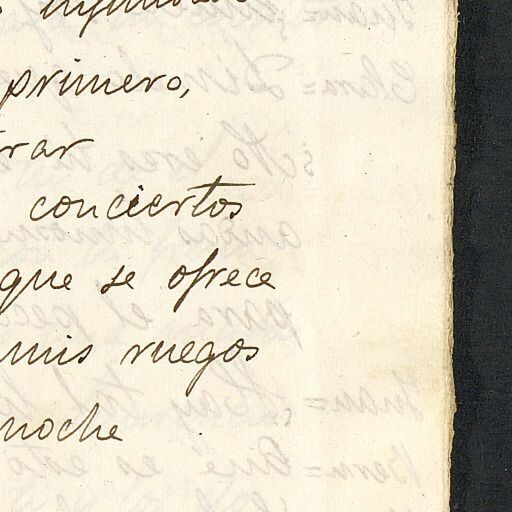 primero,
rar
conciertos
que se ofrece
mis ruegos
noche